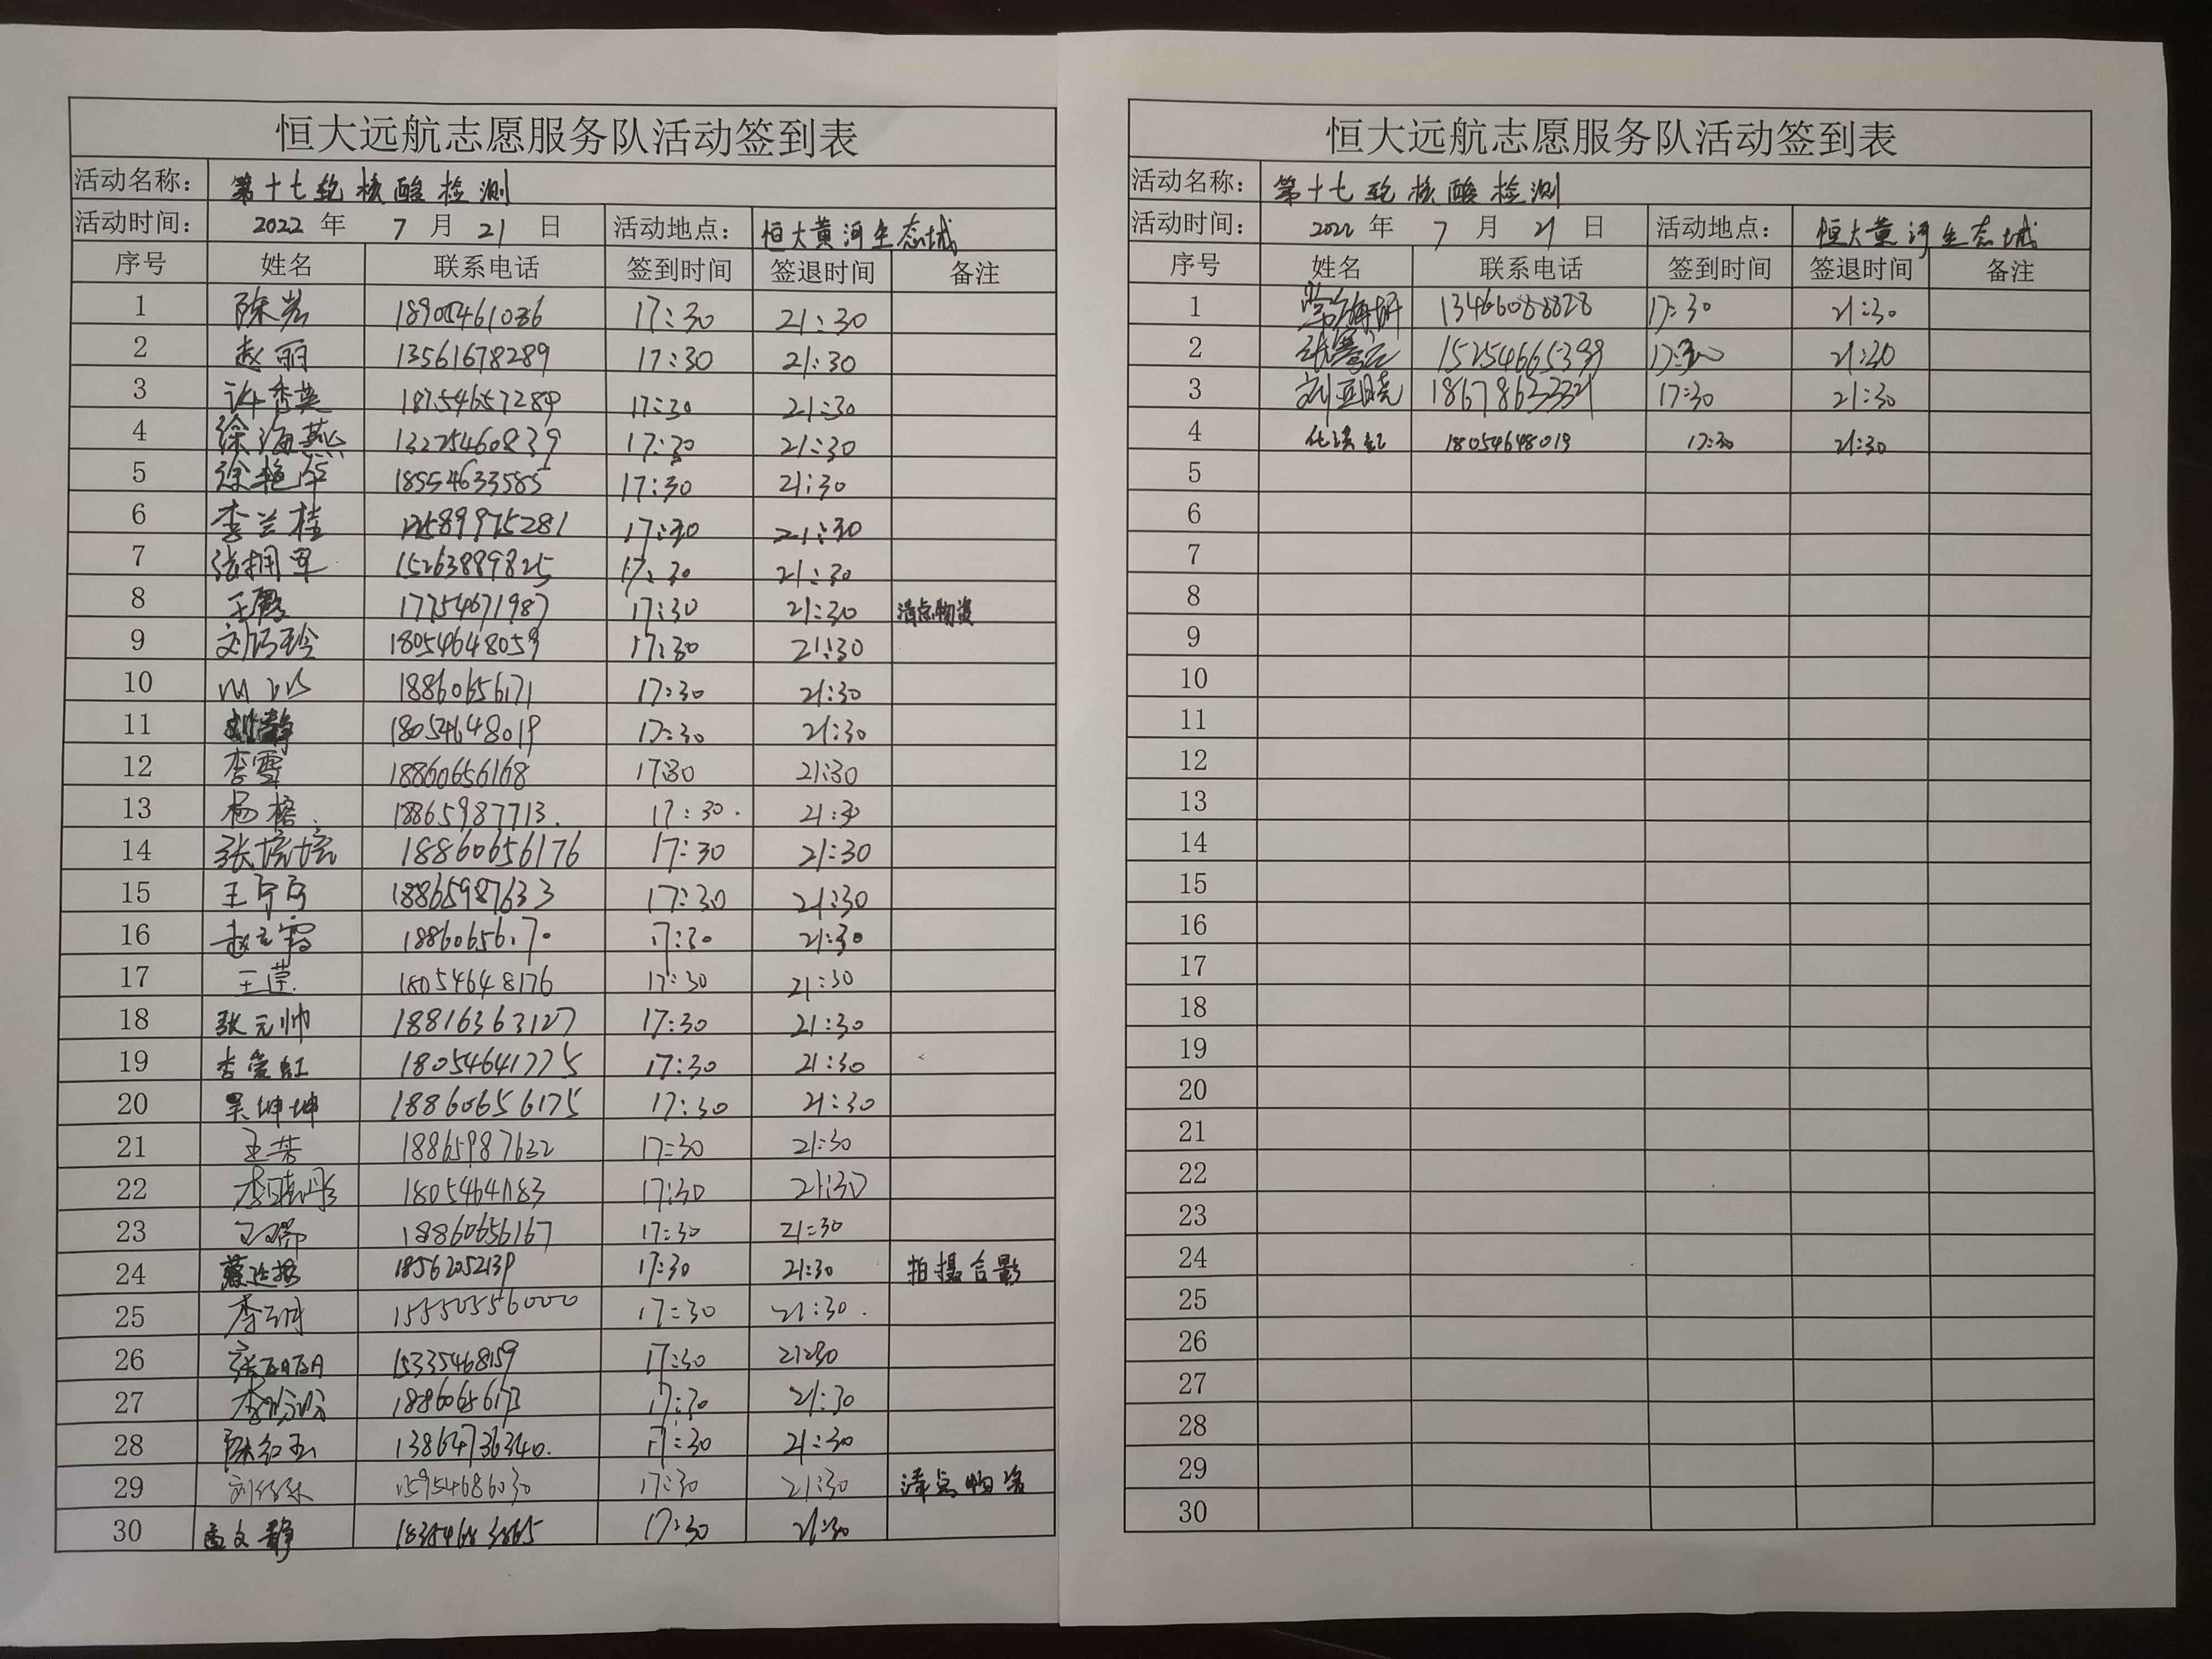 恒大远航志愿服务队活动签到表
活动名称： 第十七轮核酸检测
活动时间： 2022 年 7 月 21 日 活动地点： 恒大黄河生态城
序号 姓名 联系电话 签到时间 签退时间 备注
1 陈岩 18905461036 17:30 21:30
2 赵丽 13561678289 17:30 21:30
3 许秀英 18754657289 17:30 21:30
4 徐海燕 13225460839 17:30 21:30
5 徐艳华 18554633585 17:30 21:30
6 李兰桂 17:30 21:30
7 张拥军 15263889825 17:30 21:30
8 17754671987 17:30 21:30 清点物资
9 刘巧玲 18054648059 17:30 21:30
10 18860656171 17:30 21:30
11 18054648019 17:30 21:30
12 李雪 18860656168 17:30 21:30
13 杨 18865987713. 17:30. 21:30
14 张培培 18860656176 17:30 21:30
15 王宁宁 18865987633 17:30 21:30
16 赵立霞 18860656170 17:30 21:30
17 王莲 18054648176 17:30 21:30
18 张元帅 18816363127 17:30 21:30
19 李爱红 18054641775 17:30 21:30
20 吴坤坤 18860656175 17:30 21:30
21 18865987632 17:30 21:30
22 李晓彤 17:30 21:30
23 18860656167 17:30 21:30
24 18562052139 17:30 21:30 拍摄合影
25 15550556000 17:30 21:30.
26 15335468159 17:30 21:30
27 李盼盼 18860656173 17:30 21:30
28 陈红玉 13864736340. 17:30 21:30
29 15954686030 17:30 21:30 清点物资
30 孟文静 17:30 21:30
恒大远航志愿服务队活动签到表
活动名称： 第十七轮核酸检测
活动时间： 2022 年 7 月 21 日 活动地点： 恒大黄河生态城
序号 姓名 联系电话 签到时间 签退时间 备注
1 13466088828 17:30 21:30
2 15254665399 17:30 21:30
3 刘亚晓 17:30 21:30
4 18054648019 17:30 21:30
5
6
7
8
9
10
11
12
13
14
15
16
17
18
19
20
21
22
23
24
25
26
27
28
29
30